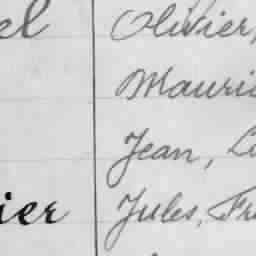 el Olivier,
Mauri
Jean, L
ier Jules, Fr